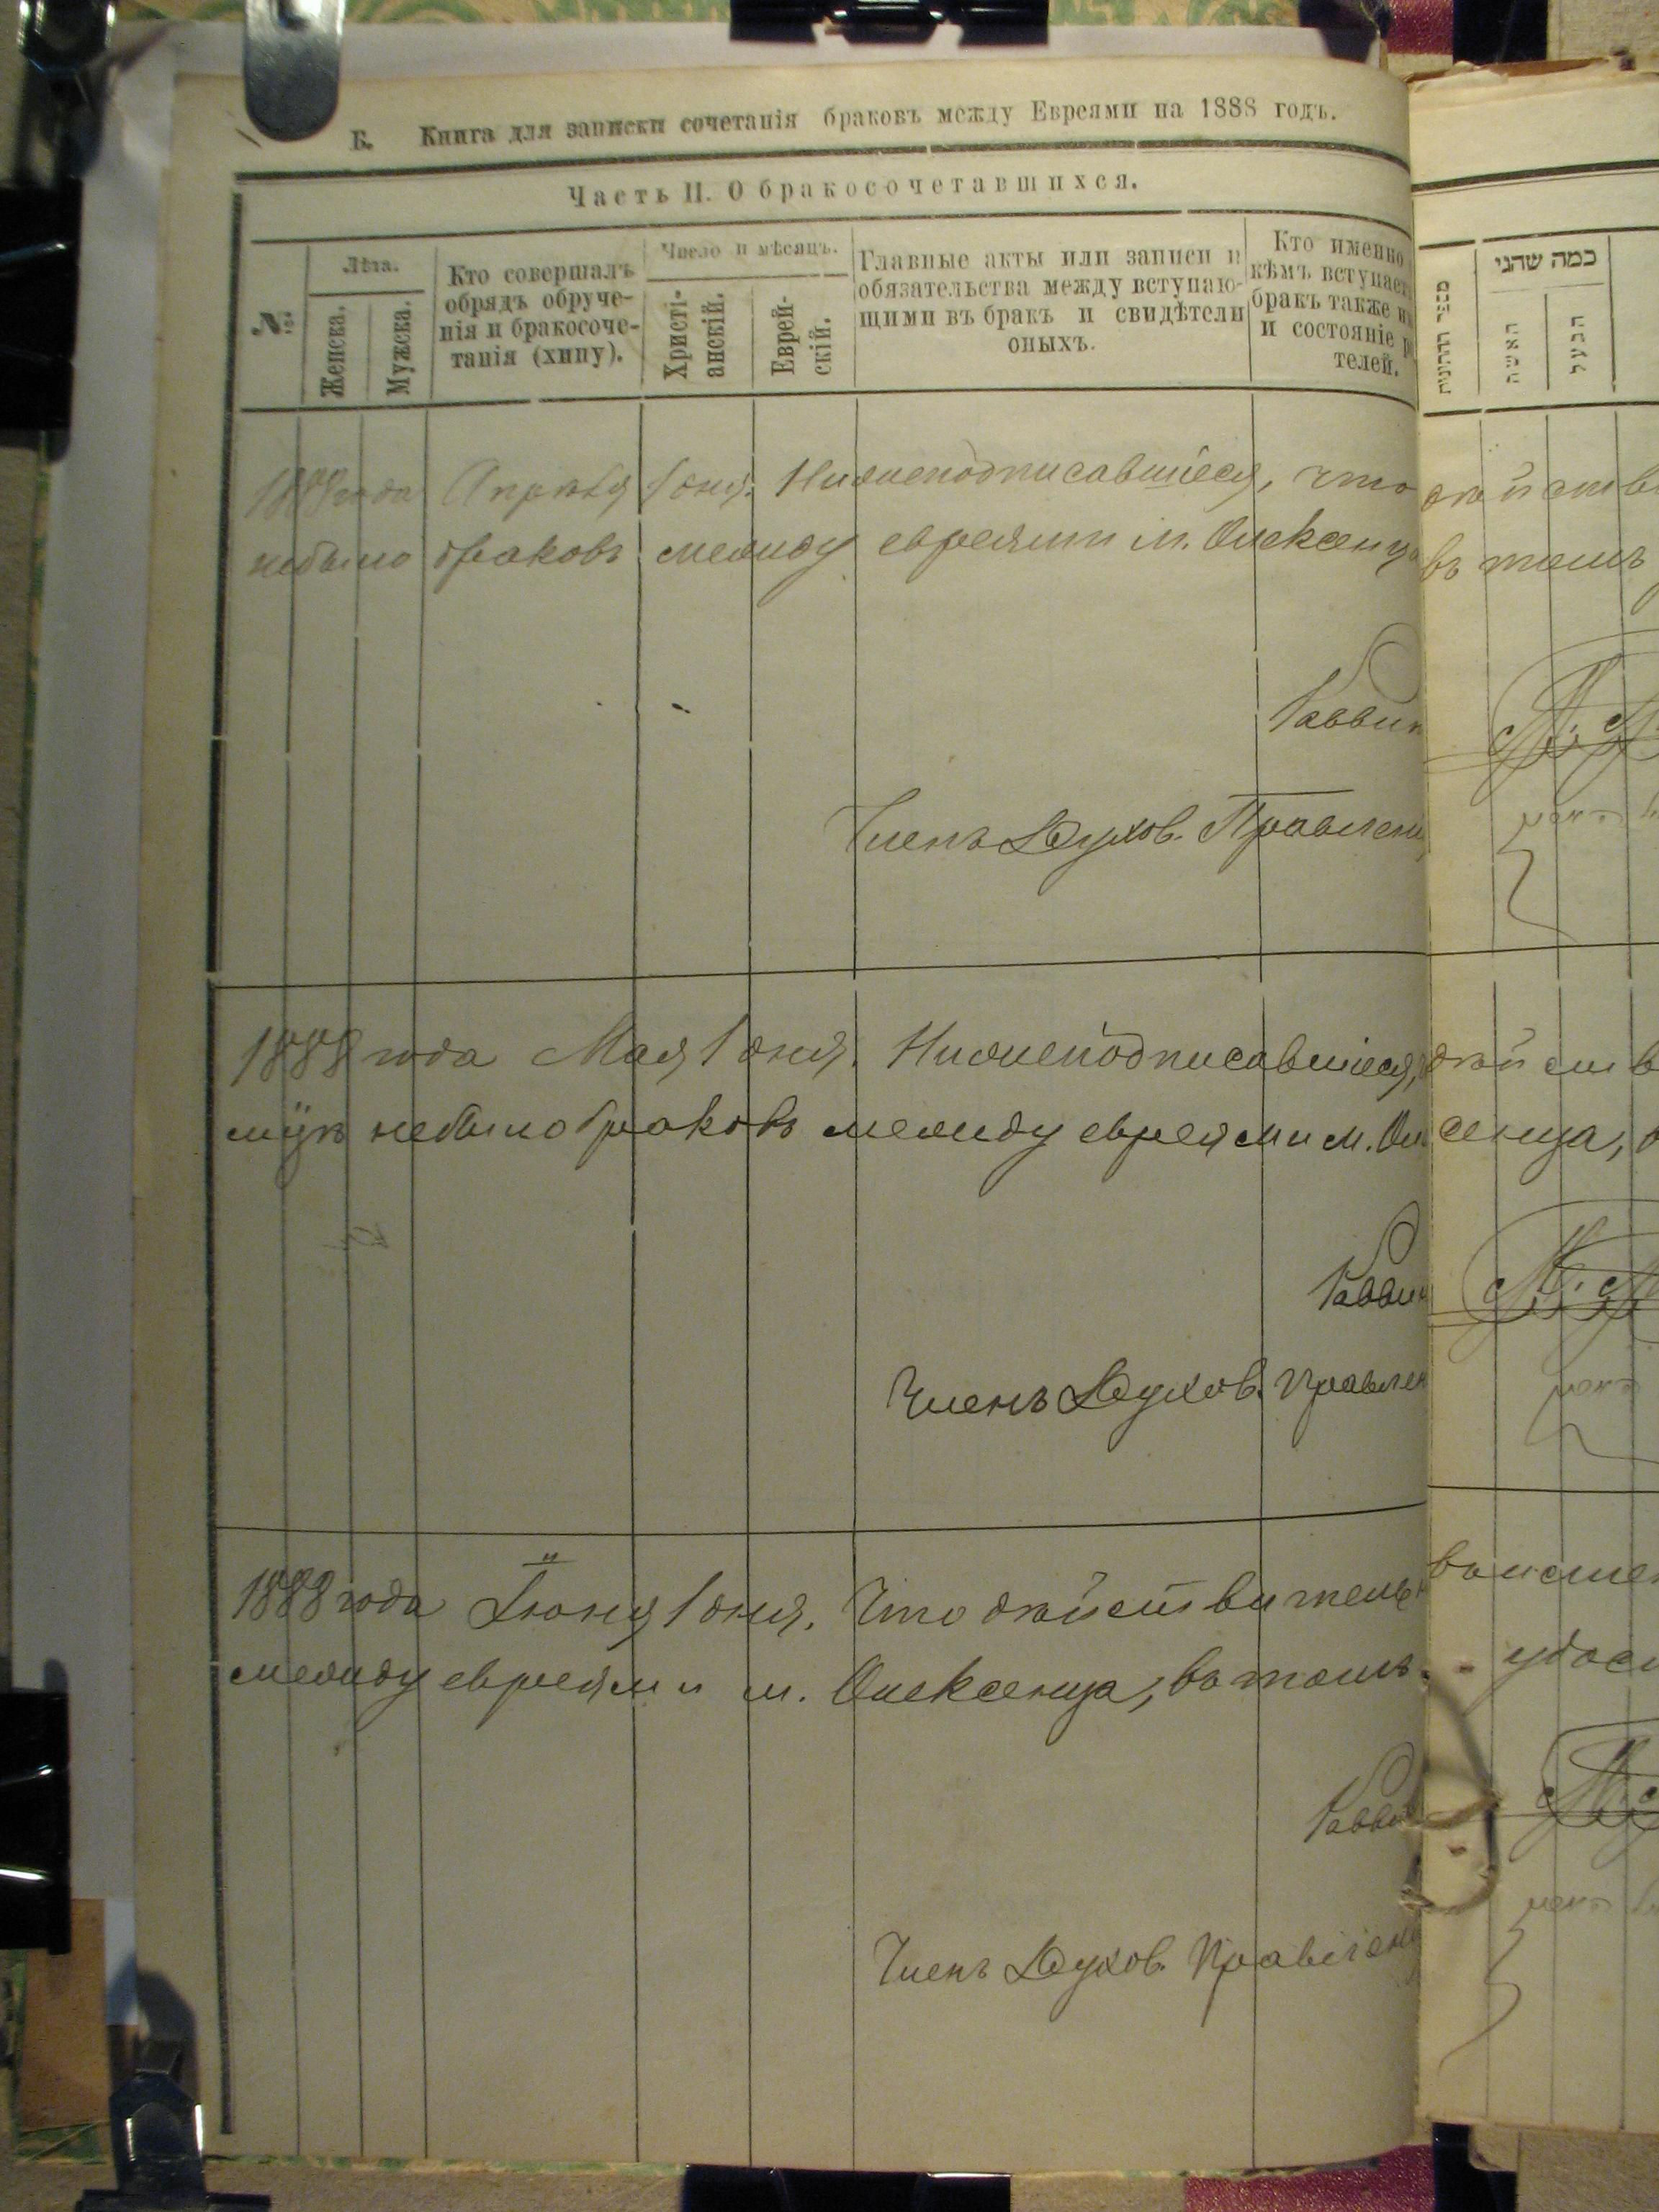 Б. Книга для записки сочетанія браковъ между Евреями на 1888 годъ.
Часть II. О бракосочетавшихся.
№
Лѣта.
Женска.
Мужска.
Кто совершалъ
обрядъ обруче-
нія и бракосоче-
танія (хипу).
Число и мѣсяцъ.
Христі-
анскій.
Еврей-
скій.
Главные акты или записи и
обязательства между вступаю-
щими въ бракъ и свидѣтели
оныхъ.
Кто именно
кѣмъ вступает
бракъ также и
и состояніе р
телей.
כמה שהני
האשה
הבעל
1888 года Апрѣля 1 дня. Нижеподписавшіеся, что дѣйств
небыло браковъ между евреями м. Олексенца въ томъ
Раввин
Членъ Духов. Правлени
1888 года Мая 1 дня. Нижеподписавшіеся, дѣйств
небыло браковъ между евреями м. Олексенца,
Раввин
Членъ Духов. Правлен
1888 года Іюня 1 дня. Что дѣйствительн
между евреями м. Олексенца, въ томъ удос
Равви
Членъ Духов. Правлени